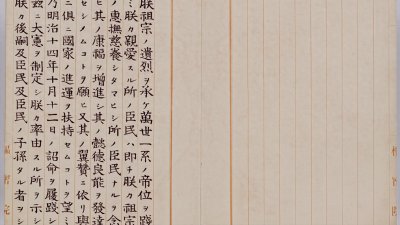 朕祖宗ノ遺烈ヲ承ケ萬世一系ノ帝位ヲ踐
ミ朕カ親愛スル所ノ臣民ハ卽チ朕カ祖宗
ノ惠撫慈養シタマヒシ所ノ臣民ナルヲ念
ヒ其ノ康福ヲ增進シ其ノ懿德良能ヲ發達
セシメムコトヲ願ヒ又其ノ翼贊ニ依リ與
ニ俱ニ國家ノ進運ヲ扶持セムコトヲ望ミ
乃チ明治十四年十月十二日ノ詔命ヲ履踐シ
茲ニ大憲ヲ制定シ朕カ率由スル所ヲ示シ
朕カ後嗣及臣民及臣民ノ子孫タル者ヲシ